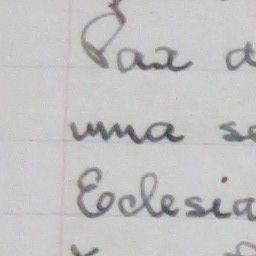 Pax d
uma se
Eclesia